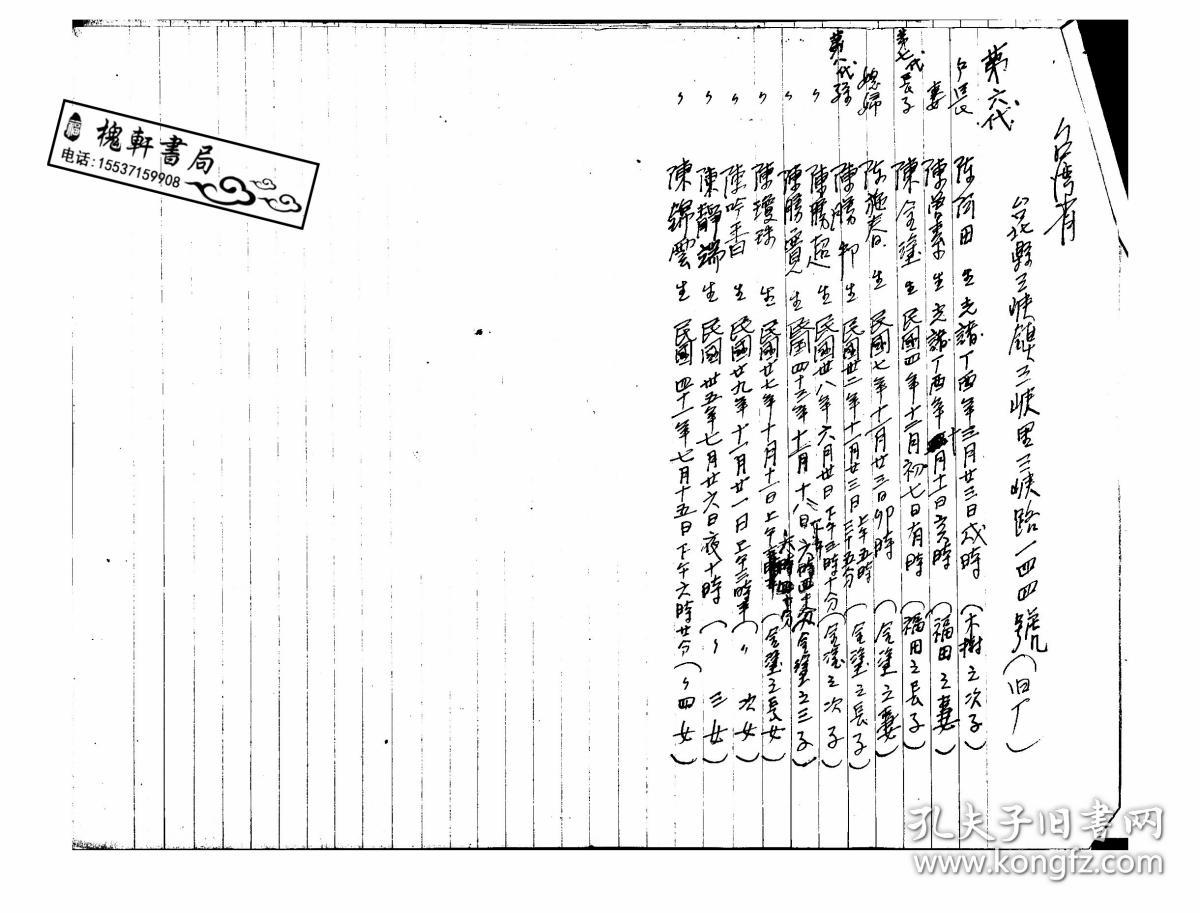 台湾省
台北縣三峽鎮三峽里三峽路一四四號(旧丁)
第六代
户長 陳 田 生 光緒丁酉年三月廿三日戌時 (木樹之次子)
妻 陳曾素 生 光緒丁酉年十月十一日亥時 (福田之妻)
第七代長子 陳金塗 生 民國四年十二月初七日有時 (福田之長子)
媳婦 陳施春 生 民國七年十一月廿三日卯時 (金塗之妻)
第八代孫 陳勝 生 民國廿二年十一月廿三日上午五時三十五分 (金塗之長子)
〃 陳勝超 生 民國廿八年六月廿日下午三時十分 (金塗之次子)
〃 陳勝 生 民國四十三年十一月十八日下午六時四十分 (金塗之三子)
〃 陳瓊珠 生 民國廿七年十月十一日上午 (金塗之長女)
〃 陳吟 生 民國廿九年十一月廿一日上午三時半 (〃 次女)
〃 陳靜端 生 民國卅五年七月廿六日夜十時 (〃 三女)
〃 陳錦雲 生 民國四十一年七月十五日下午六時廿分 (〃四女)
槐軒書局
电话:15537159908
孔夫子旧书网
www.kongfz.com